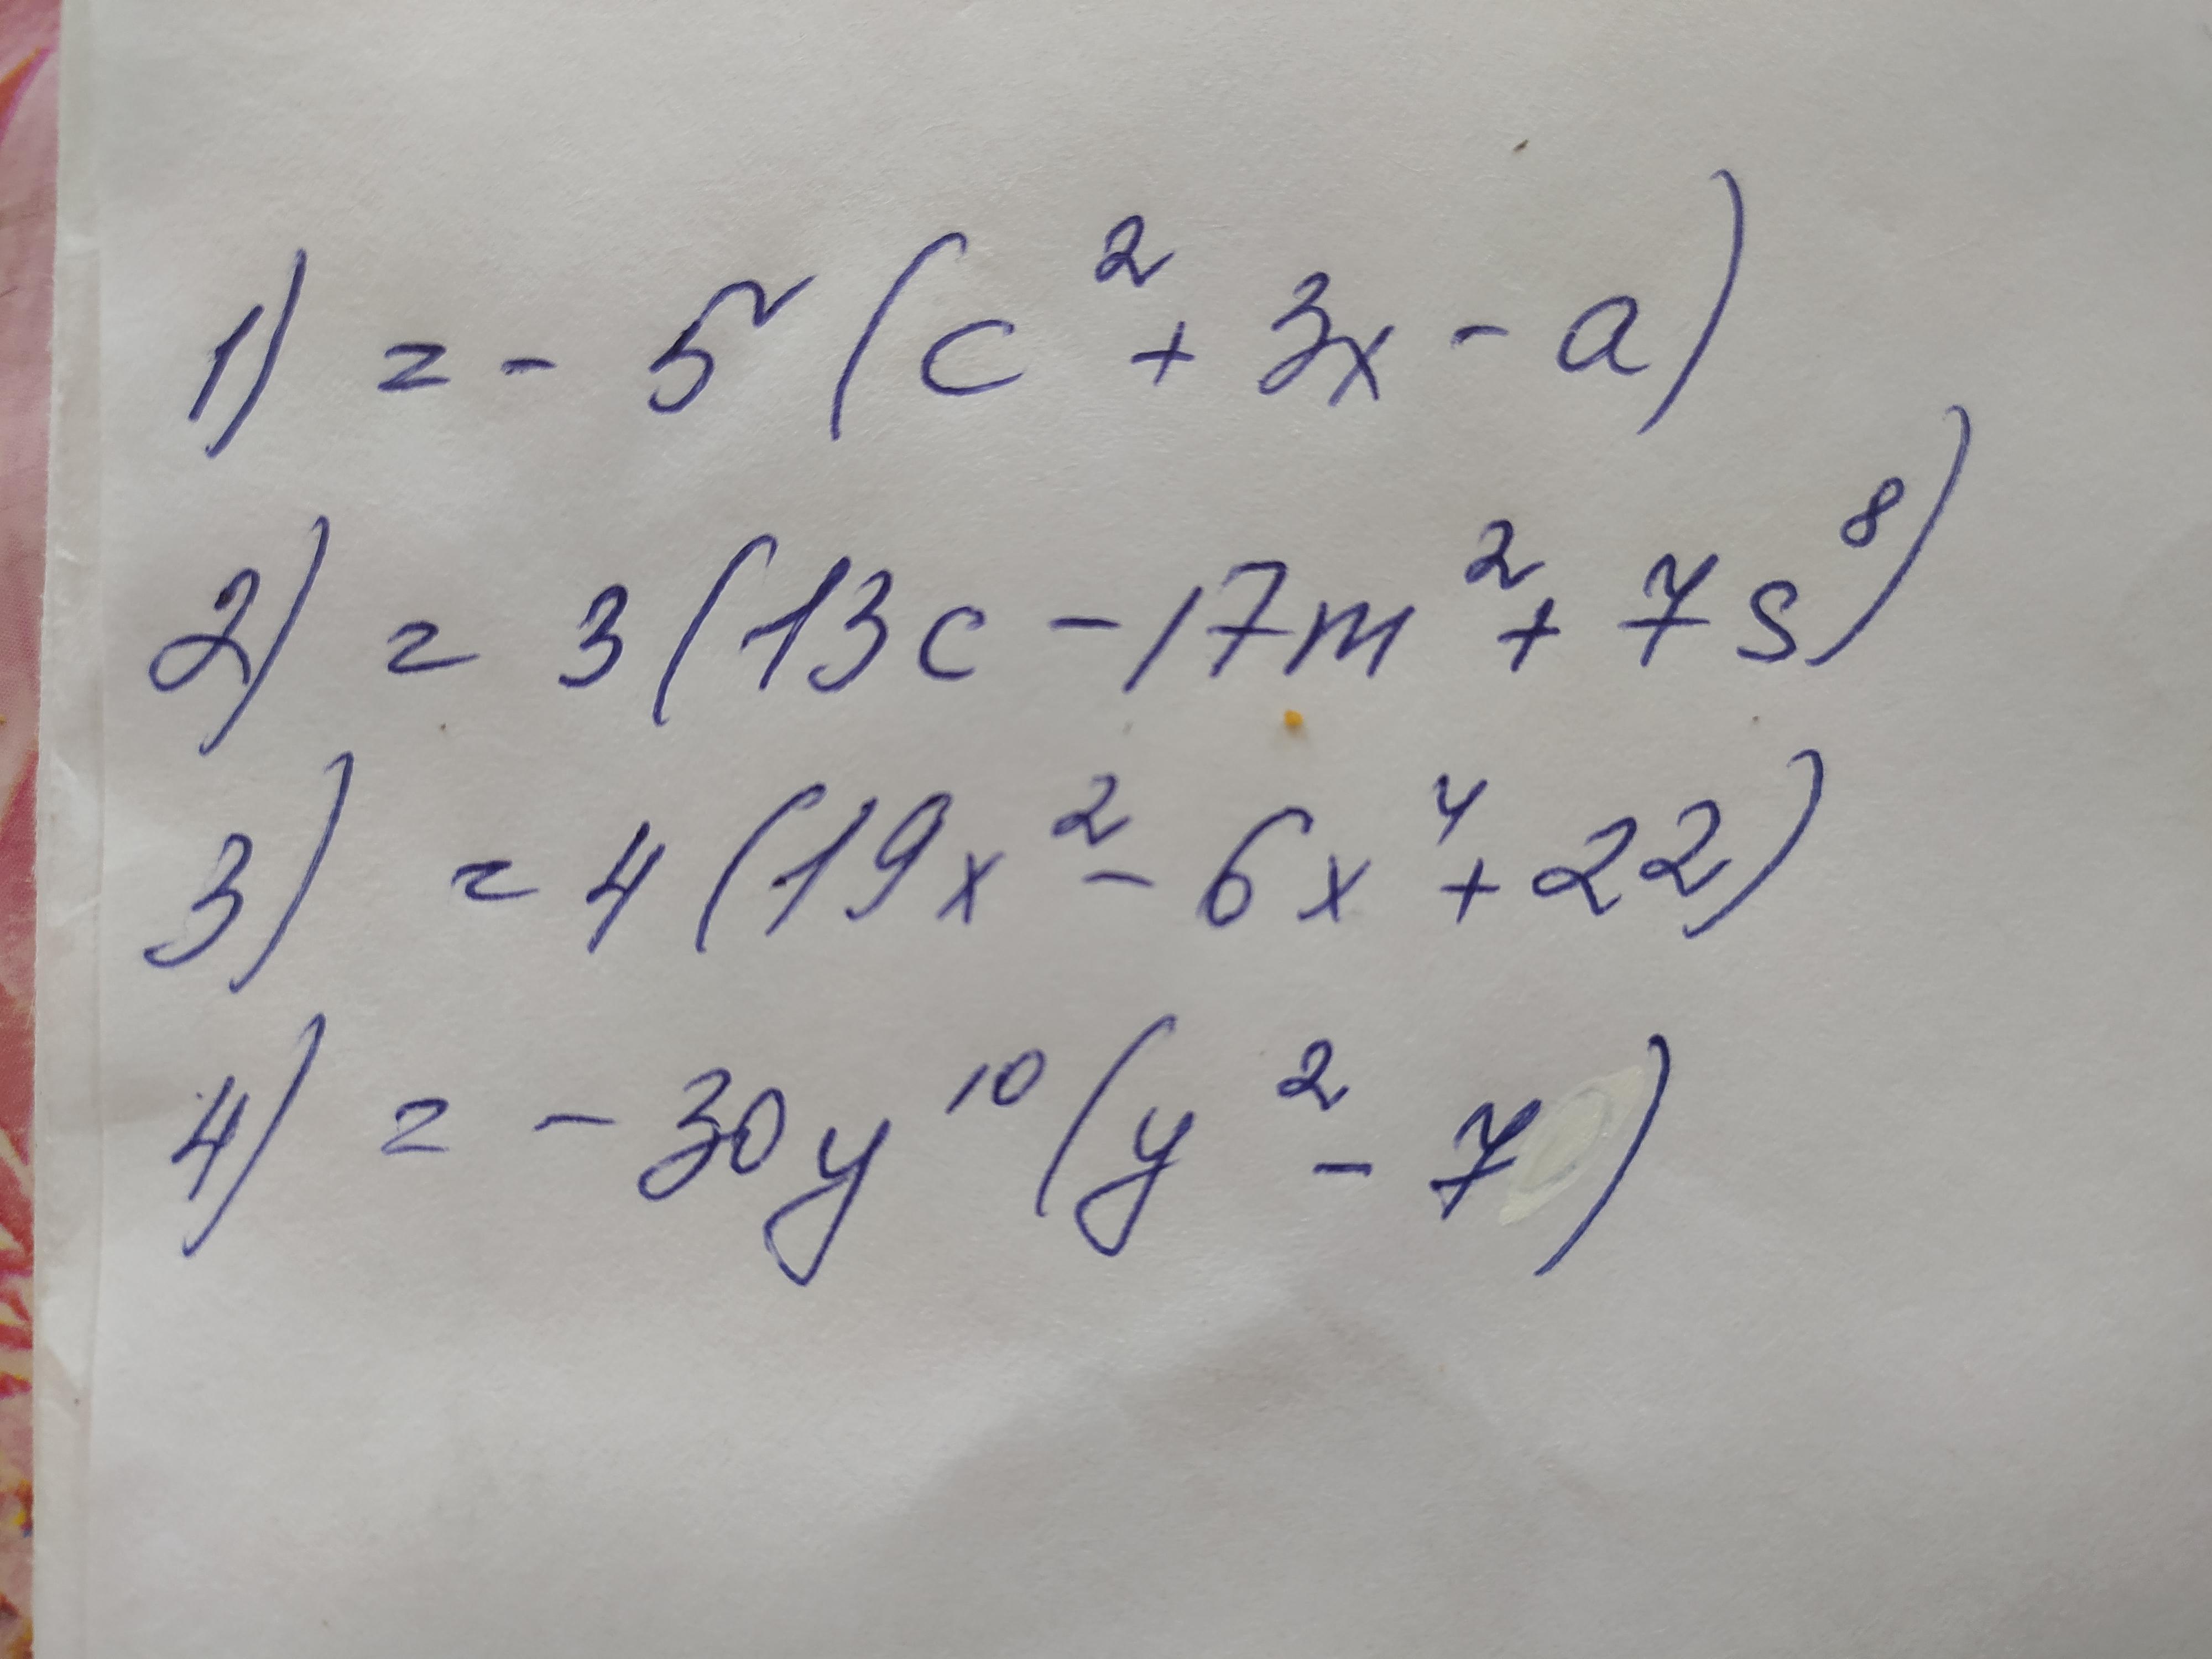 1) = - 5 (c² + 3x - a)
2) = 3 (13c - 17m² + 7s⁸)
3) = 4 (19x² - 6x⁴ + 22)
4) = - 30y¹⁰ (y² - 7)